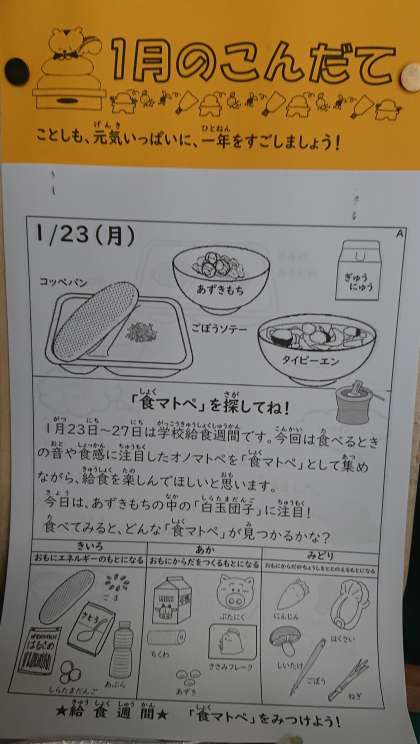 1月のこんだて
ことしも、元気いっぱいに、一年をすごしましょう!
1/23(月)
A
コッペパン
あずきもち
ぎゅう
にゅう
ごぼうソテー
タイピーエン
「食マトペ」を探してね!
1月23日~27日は学校給食週間です。今回は食べるとき
の音や食感に注目したオノマトペを「食マトペ」として集め
ながら、給食を楽しんでほしいと思います。
今日は、あずきもちの中の「白玉団子」に注目!
食べてみると、どんな「食マトペ」が見つかるかな?
きいろ
おもにエネルギーのもとになる
ごま
さとう
しらたまだんご
あぶら
あか
おもにからだをつくるもとになる
ぶたにく
ちくわ
ささみフレーク
あずき
みどり
おもにからだのちょうしをととのえるもとになる
にんじん
はくさい
しいたけ
ごぼう
ねぎ
★給食週間★ 「食マトペ」をみつけよう!